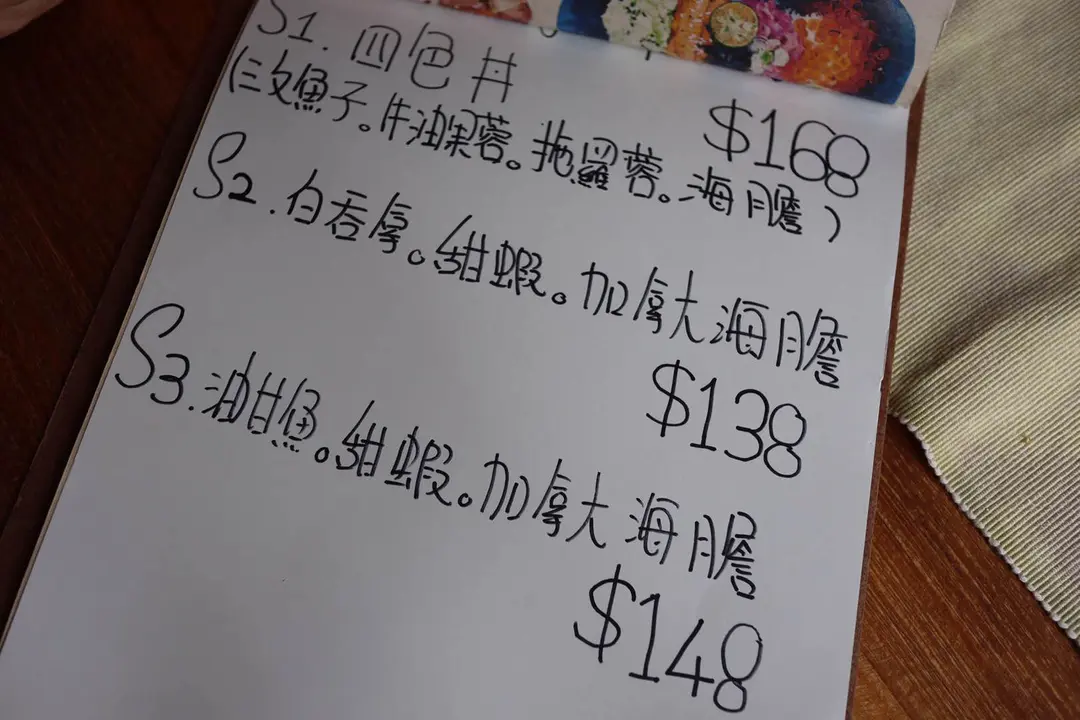 S1. 四色丼
$168
(三文魚子。牛油果蓉。拖羅蓉。海膽)
S2. 白吞拿。甜蝦。加拿大海膽
$138
S3. 油甘魚。甜蝦。加拿大海膽
$148